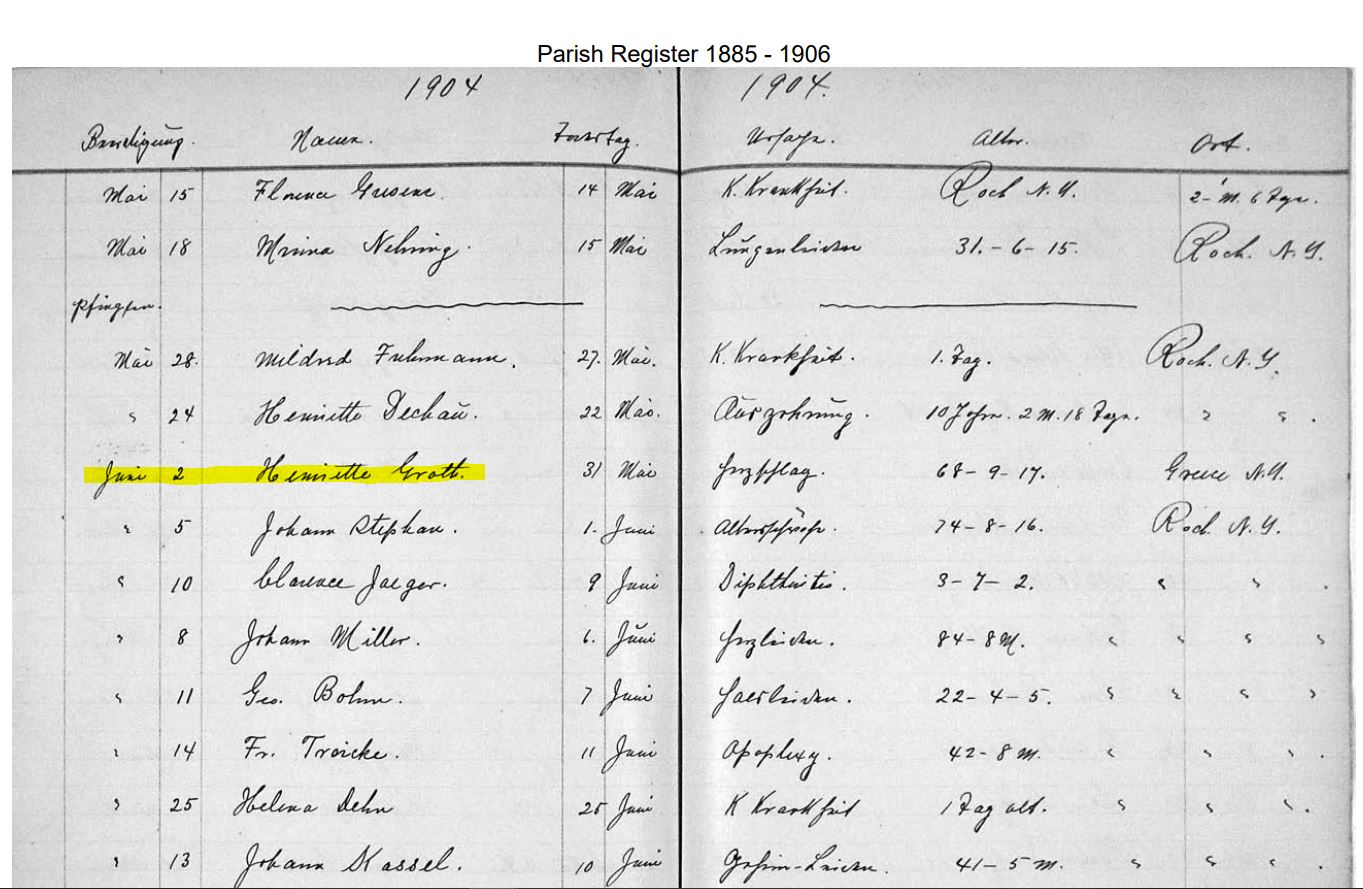 Parish Register 1885 - 1906
1904 1904.
Beerdigung. Namen. Todestag. Ursache. Alter. Ort.
Mai 15 Florence 14 Mai K. Krankheit. Roch N.Y. 2 M. 6 Tage.
Mai 18 Minna Nehring. 15 Mai Lungenleiden 31.-6-15. Roch. N.Y.
Pfingsten.
Mai 28. Mildred Fuhrmann. 27. Mai. K. Krankheit. 1. Tag. Roch. N.Y.
" 24 Henriette Dechau. 22 Mai. Auszehrung. 10 Jahre. 2 M. 18 Tage. " " .
Juni 2 Henriette Grott. 31 Mai Herzschlag. 68-9-17. Greece N.Y.
" 5 Johann Stephan. 1. Juni Altersschwäche. 74-8-16. Roch N.Y.
" 10 Clarence Jaeger. 9 Juni Diphtheritis. 3-7-2. " " .
" 8 Johann Miller. 6. Juni Herzleiden. 84-8 M. " " " "
" 11 Geo. Bohm. 7 Juni 22-4-5. " " " "
" 14 Fr. Troicke. 11 Juni Apoplexy. 42-8 M. " " " .
" 25 Helena Dehn 25 Juni K Krankheit 1 Tag alt. " " " .
" 13 Johann Kassel. 10 Juni Gehirn-Leiden. 41-5 M. " " " .